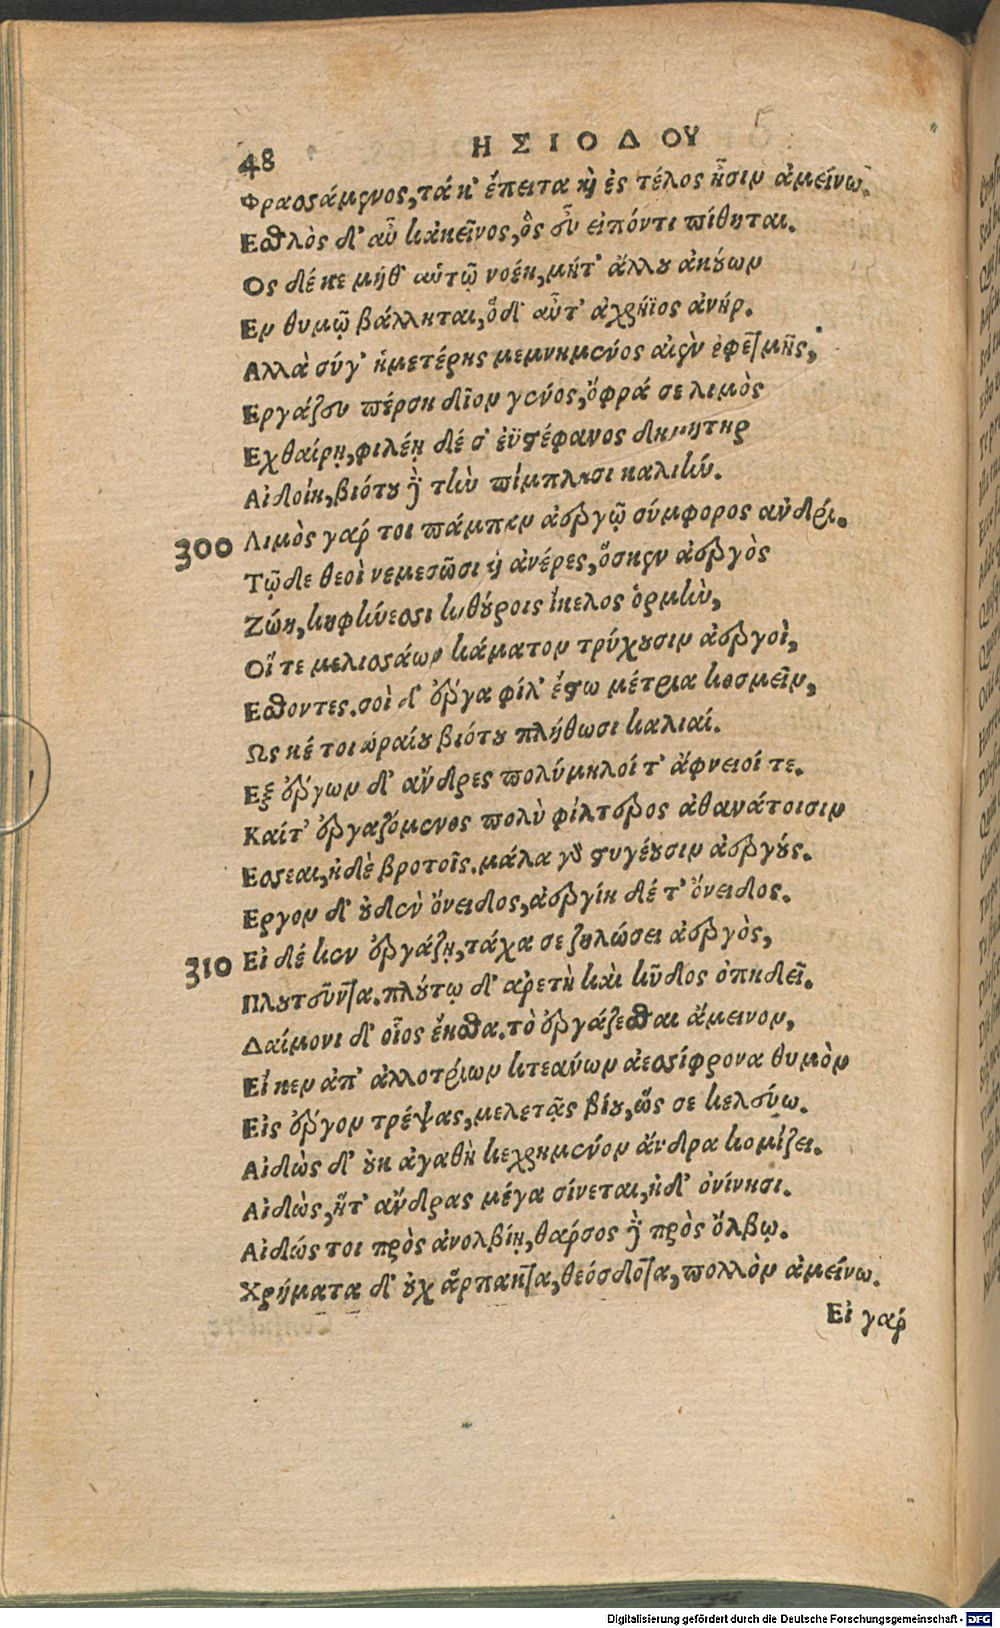 48 ΗΣΙΟΔΟΥ
Φρασσάμενος, τά κ' ἔπειτα καὶ ἐς τέλος ᾖσιν ἀμείνω.
Εσθλὸς δ' αὖ κἀκεῖνος, ὃς εὖ εἰπόντι πίθηται.
Ος δέ κε μήθ' αὑτῷ νοέῃ, μήτ' ἄλλου ἀκούων
Εν θυμῷ βάλληται, ὅδ' αὖτ' ἀχρήϊος ἀνήρ.
Αλλὰ σύγ' ἡμετέρης μεμνημένος αἰὲν ἐφετμῆς,
Εργάζευ πέρση δῖον γένος, ὄφρά σε λιμὸς
Εχθαίρῃ, φιλέῃ δέ σ' ἐϋστέφανος δημήτηρ
Αἰδοίη, βιότου δὲ τεὴν πίμπλησι καλιήν.
300 Λιμὸς γάρ τοι πάμπαν ἀεργῷ σύμφορος ἀνδρί.
Τῷδε θεοὶ νεμεσῶσι καὶ ἀνέρες, ὅς κεν ἀεργὸς
Ζώῃ, κηφήνεσσι κοθούροις ἴκελος ὁρμὴν,
Οἵ τε μελισσάων κάματον τρύχουσιν ἀεργοὶ,
Εσθοντες. σοὶ δ' ἔργα φίλ' ἔστω μέτρια κοσμεῖν,
Ως κέ τοι ὡραίου βιότου πλήθωσι καλιαί.
Εξ ἔργων δ' ἄνδρες πολύμηλοί τ' ἄφνειοί τε.
Καίτ' ἐργαζόμενος πολὺ φίλτερος ἀθανάτοισιν
Εσσεαι, ἠδὲ βροτοῖς. μάλα γὰρ στυγέουσιν ἀεργούς.
Εργον δ' οὐδὲν ὄνειδος, ἀεργίη δέ τ' ὄνειδος.
310 Εἰ δέ κεν ἐργάζῃ, τάχα σε ζηλώσει ἀεργὸς,
Πλουτεῦντα. πλούτῳ δ' ἀρετὴ καὶ κῦδος ὀπηδεῖ.
Δαίμονι δ' οἷος ἔησθα. τὸ ἐργάζεσθαι ἄμεινον,
Εἴ κεν ἀπ' ἀλλοτρίων κτεάνων ἀεσίφρονα θυμὸν
Εἰς ἔργον τρέψας, μελετᾷς βίου, ὥς σε κελεύω.
Αἰδὼς δ' οὐκ ἀγαθὴ κεχρημένον ἄνδρα κομίζει.
Αἰδὼς, ἥτ' ἄνδρας μέγα σίνεται, ἠδ' ὀνίνησι.
Αἰδώς τοι πρὸς ἀνολβίῃ, θάρσος δὲ πρὸς ὄλβῳ.
Χρήματα δ' οὐχ ἁρπακτὰ, θεόσδοτα, πολλὸν ἀμείνω.
Εἰ γάρ
Digitalisierung gefördert durch die Deutsche Forschungsgemeinschaft - DFG